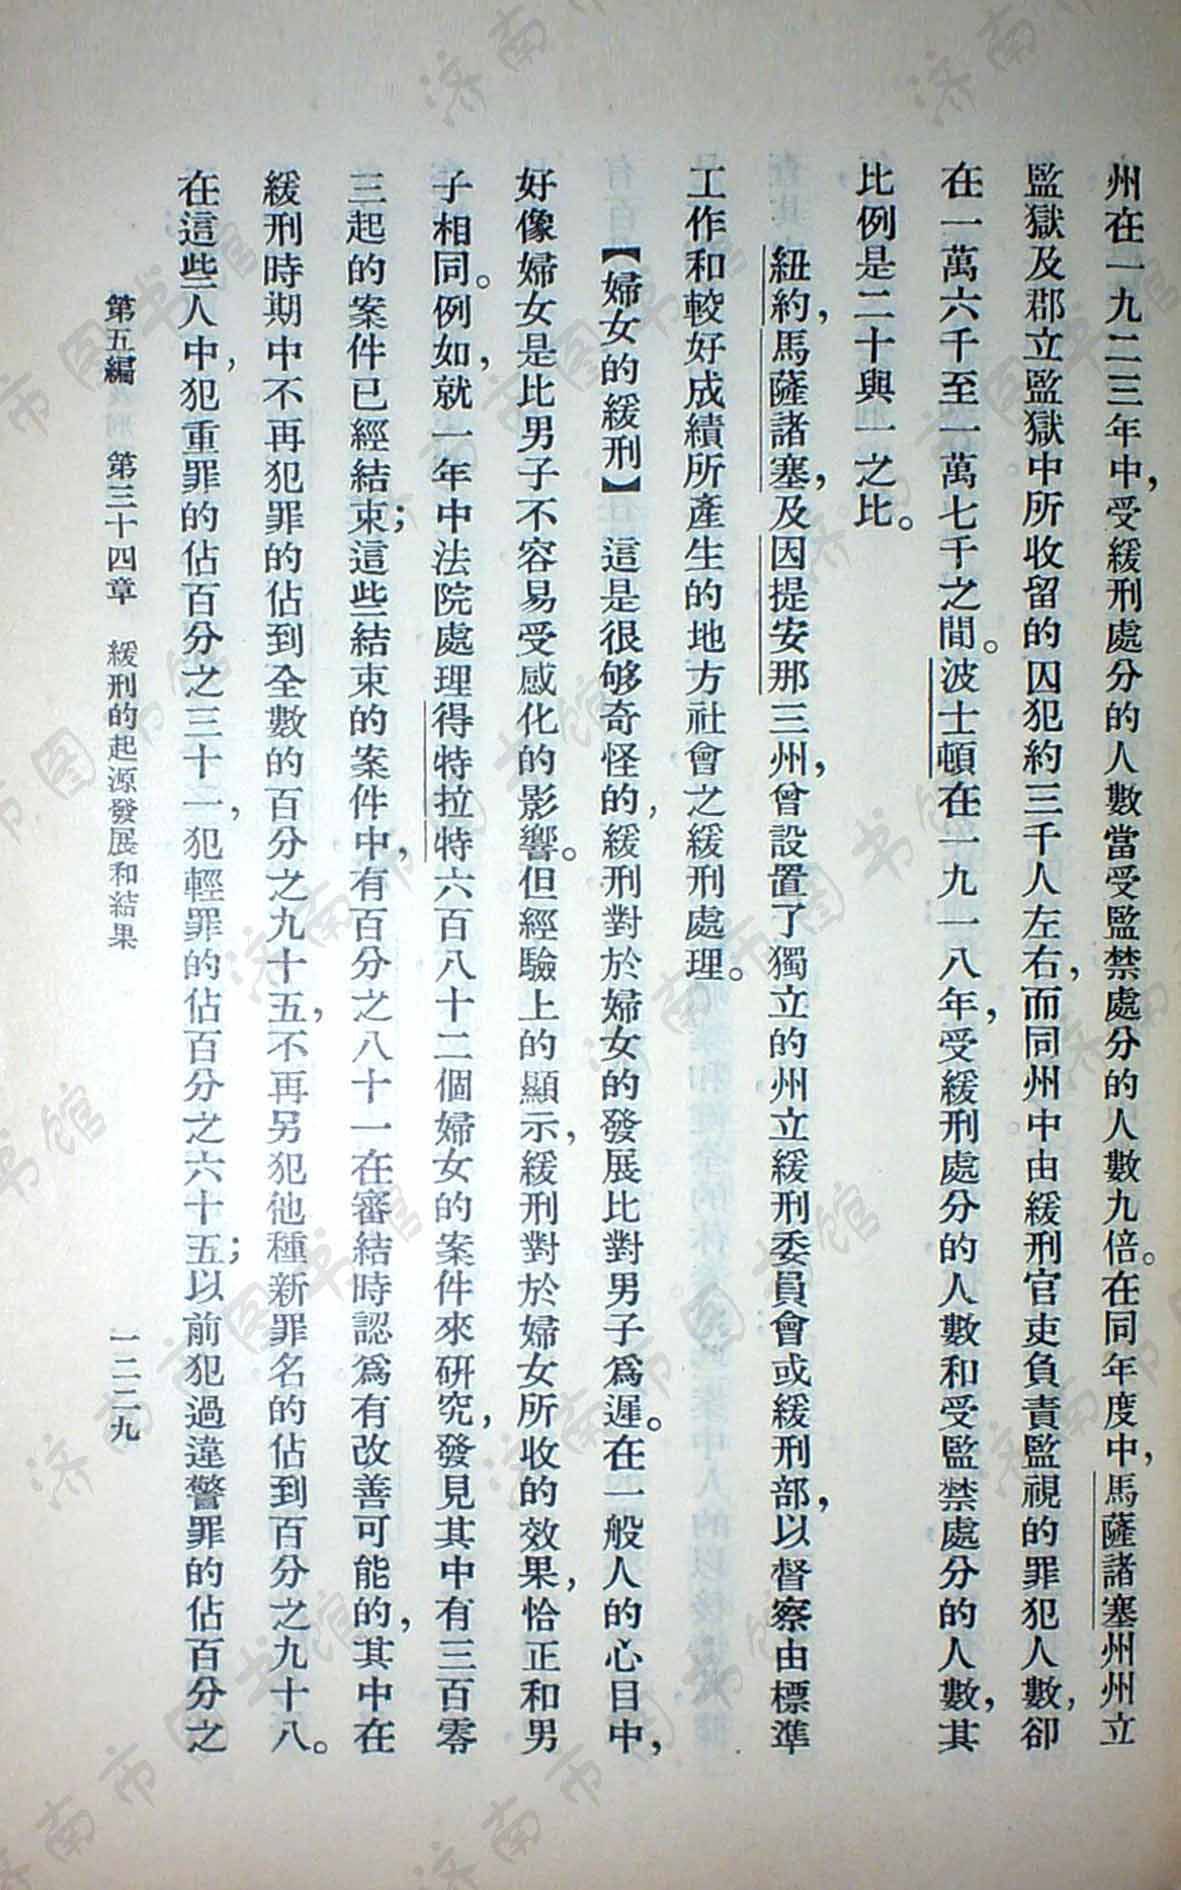 州在一九二三年中，受緩刑處分的人數當受監禁處分的人數九倍。在同年度中，馬薩諸塞州州立
監獄及郡立監獄中所收留的囚犯約三千人左右，而同州中由緩刑官吏負責監視的罪犯人數，卻
在一萬六千至一萬七千之間。波士頓在一九一八年，受緩刑處分的人數和受監禁處分的人數，其
比例是二十與一之比。
紐約，馬薩諸塞，及因提安那三州，曾設置了獨立的州立緩刑委員會或緩刑部，以督察由標準
工作和較好成績所產生的地方社會之緩刑處理。
【婦女的緩刑】這是很够奇怪的，緩刑對於婦女的發展比對男子爲遲。在一般人的心目中，
好像婦女是比男子不容易受感化的影響。但經驗上的顯示，緩刑對於婦女所收的效果，恰正和男
子相同。例如，就一年中法院處理得特拉特六百八十二個婦女的案件來研究，發見其中有三百零
三起的案件已經結束；這些結束的案件中，有百分之八十一在審結時認爲有改善可能的，其中在
緩刑時期中不再犯罪的佔到全數的百分之九十五，不再另犯他種新罪名的佔到百分之九十八。
在這些人中，犯重罪的佔百分之三十一，犯輕罪的佔百分之六十五；以前犯過違警罪的佔百分之
第五編 第三十四章 緩刑的起源發展和結果 一二二九
济南市图书馆